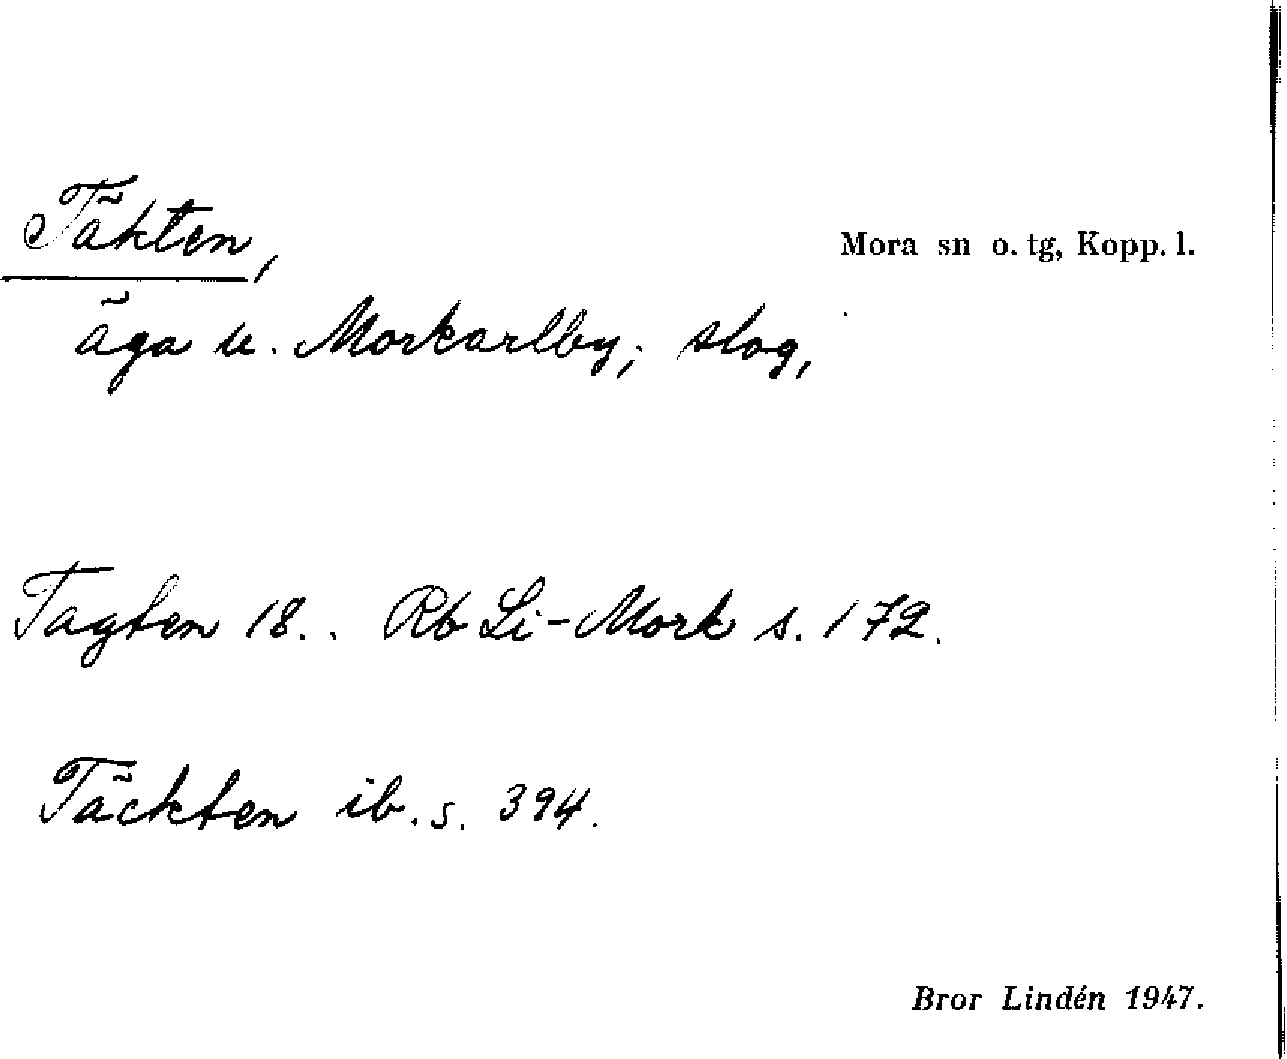 Täkten,
Mora sn o. tg, Kopp. l.
äga u. Morkarlby; slog,
Tagten 18.. Rb Li-Mork s. 172.
Täckten ib. s. 394.
Bror Lindén 1947.